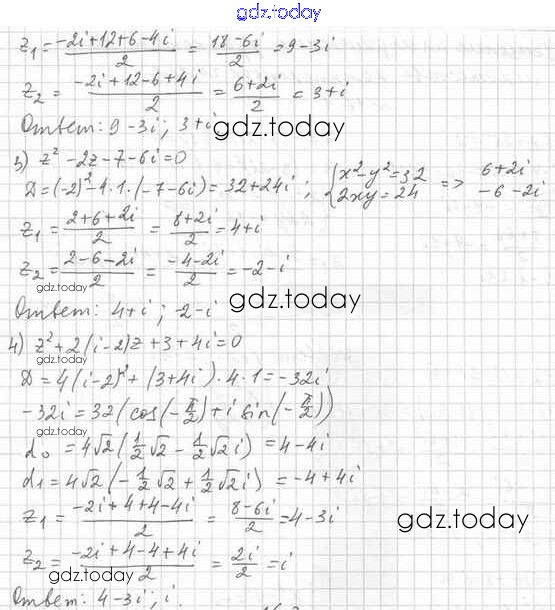 gdz.today
z₁ = (-2i+12+6-4i)/2 = (18-6i)/2 = 9-3i
z₂ = (-2i+12-6+4i)/2 = (6+2i)/2 = 3+i
Ответ: 9-3i; 3+i
gdz.today
3) z²-2z-7-6i=0
gdz.today
D=(-2)²-4·1·(-7-6i)=32+24i; {x²-y²=32 2xy=24 => 6+2i -6-2i
z₁ = (2+6+2i)/2 = (8+2i)/2 = 4+i
z₂ = (2-6-2i)/2 = (-4-2i)/2 = -2-i
Ответ: 4+i; -2-i
gdz.today
4) z²+2(i-2)z+3+4i=0
gdz.today
D=4(i-2)²+(3+4i)·4·1=-32i
-32i=32(cos(-π/2)+i sin(-π/2))
gdz.today
d₀=4√2(1/2√2-1/2√2i)=4-4i
d₁=4√2(-1/2√2+1/2√2i)=-4+4i
z₁ = (-2i+4+4-4i)/2 = (8-6i)/2 = 4-3i
gdz.today
z₂ = (-2i+4-4+4i)/2 = 2i/2 = i
gdz.today
Ответ: 4-3i; i.